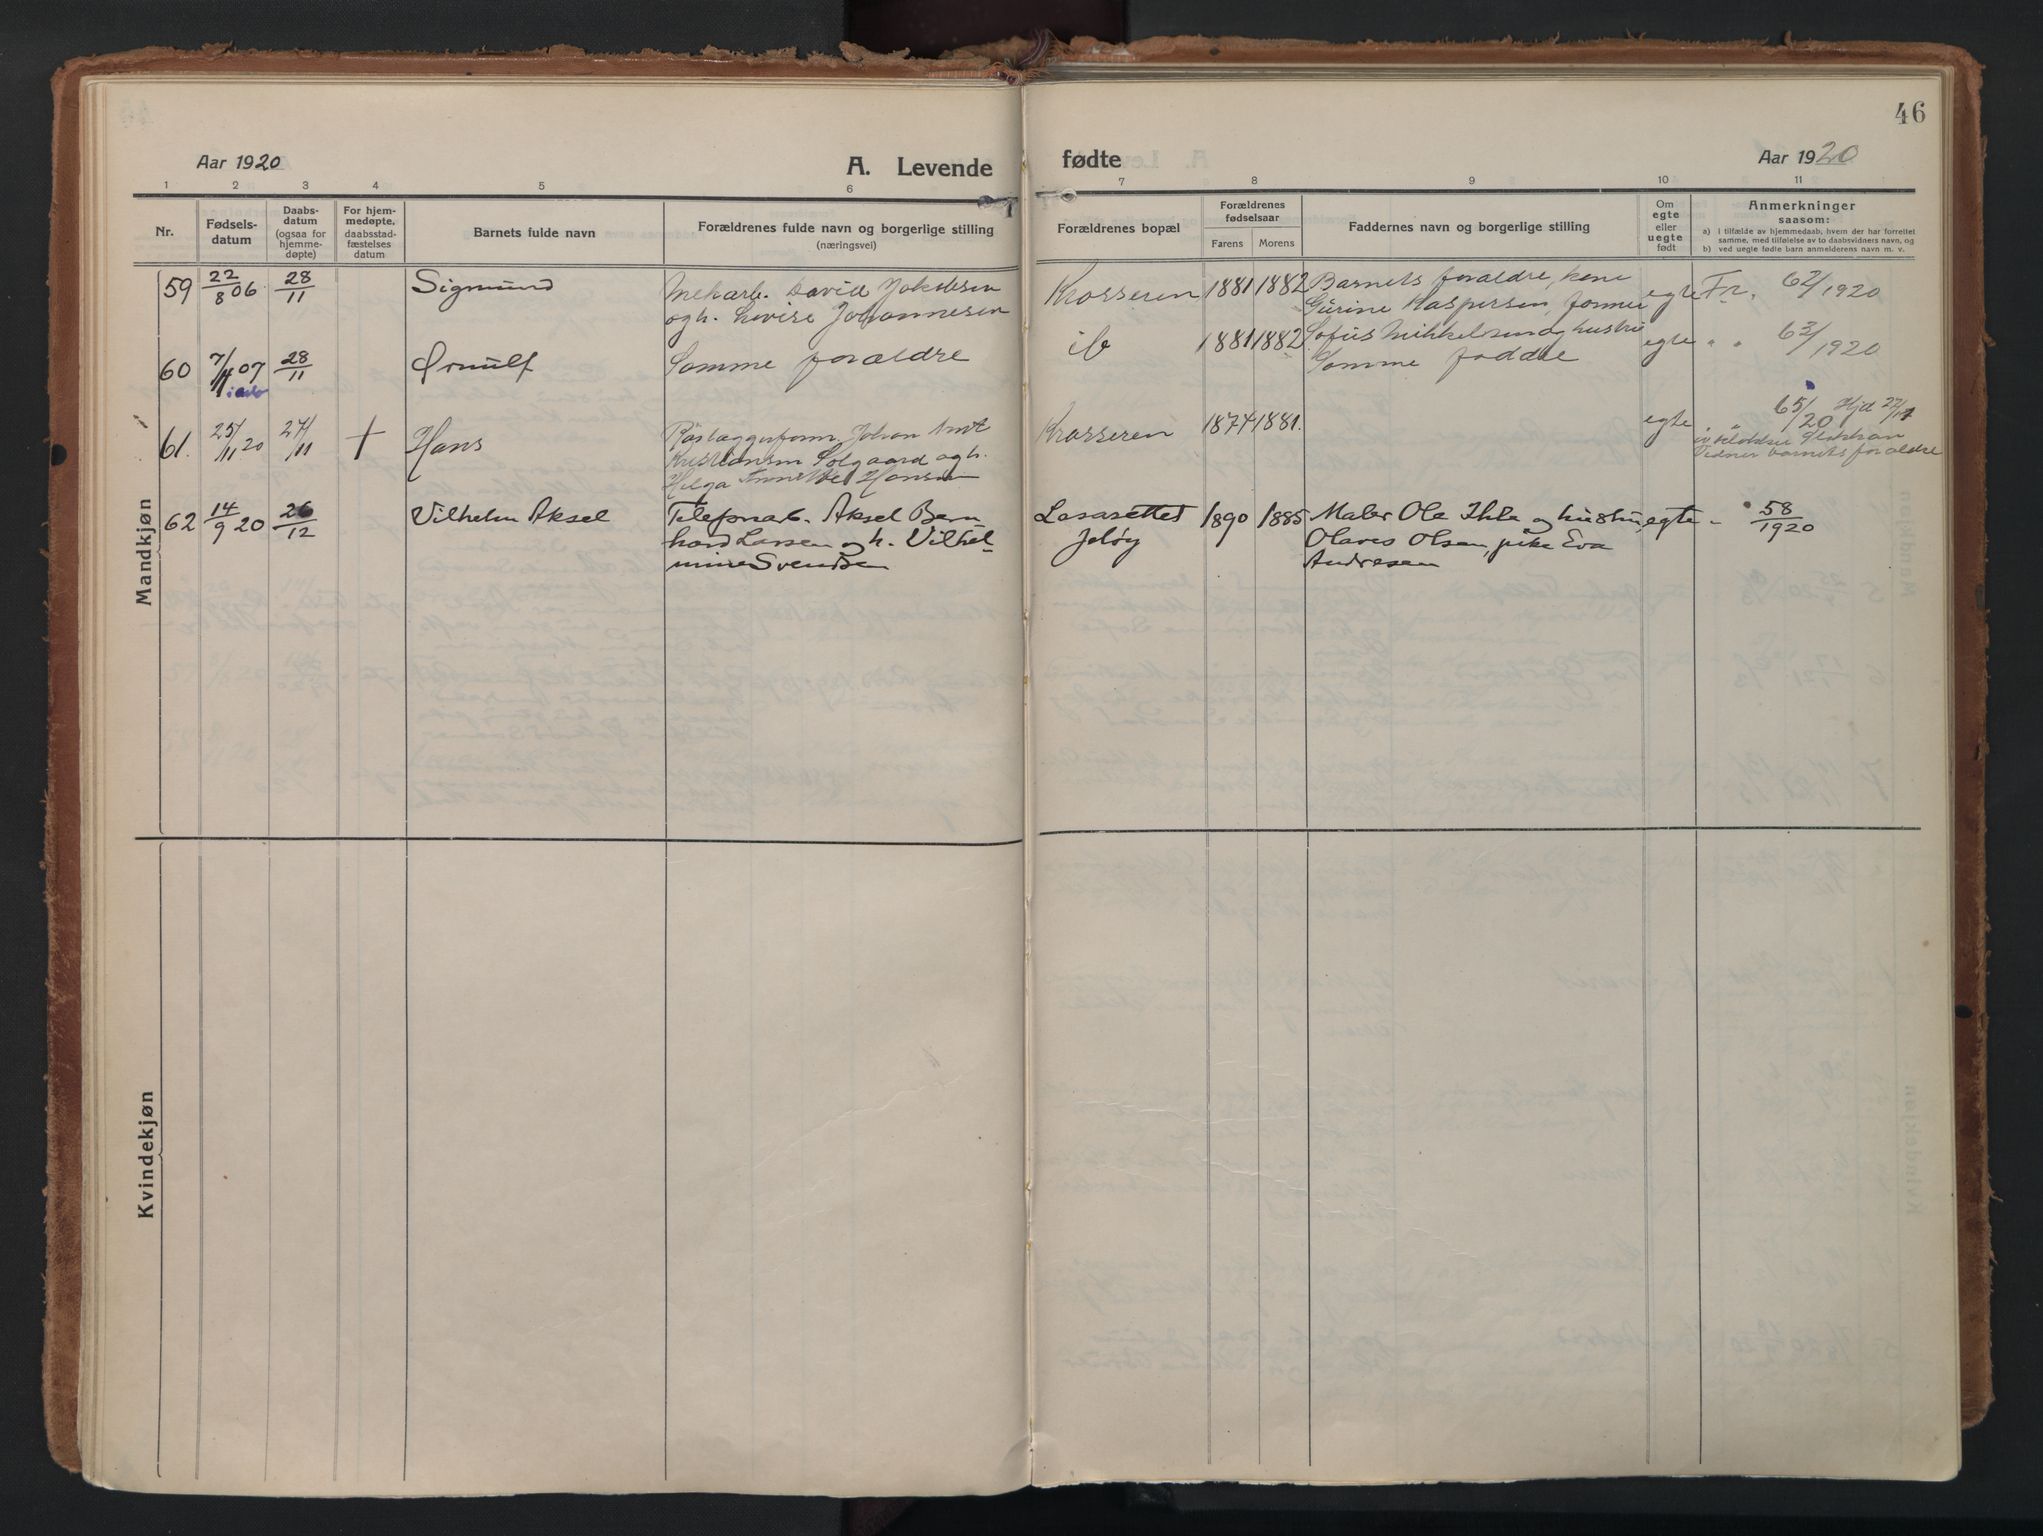 46
Aar 1920
A. Levende
fødte
Aar 1920
1 2 3 4 5 6 7 8 9 10 11
Nr.
Fødsels-
datum
Daabs-
datum
(ogsaa for
hjemme-
døpte)
For hjem-
medøpte,
daabsstad-
fæstelses
datum
Barnets fulde navn
Forældrenes fulde navn og borgerlige stilling
(næringsvei)
Forældrenes bopæl
Forældrenes
fødselsaar
Farens Morens
Faddernes navn og borgerlige stilling
Om
egte
eller
uegte
født
Anmerkninger
saasom:
a) I tilfælde av hjemmedaab, hvem der har forrettet
samme, med tilføielse av to daabsvidners navn, og
b) ved uegte fødte barn anmelderens navn m. v.
Mandkjøn
59 22/8 06 28/11 Sigmund
Mekarb. David Jakobsen
og h. Lovise Johannesen
Krosseren 1881 1882
Barnets forældre, kone
Gurine Kaspersen, former
Sofus Mikkelsen og hustru
egte Fr. 62/1920
60 7/11 07 28/11 Ørnulf
Samme forældre
ib 1881 1882
Samme faddre
egte " " 63/1920
61. 25/11 20 27/11 + Hans
Johan Arnt
Kristiansen Solgaard og h.
Helga Hansen
Krosseren 1874 1881.
egte " 65/20
barnets forældre
62 14/9 20 26/12 Vilhelm Aksel
Telefonarb. Aksel Bern
hard Larsen og h. Vilhel-
mine Svendsen
Lasarettet
Jeløy
1890 1885
Maler Ole Ihle og hustru
Olaves Olsen, pike Eva
Andresen
egte - 58/1920
Kvindekjøn